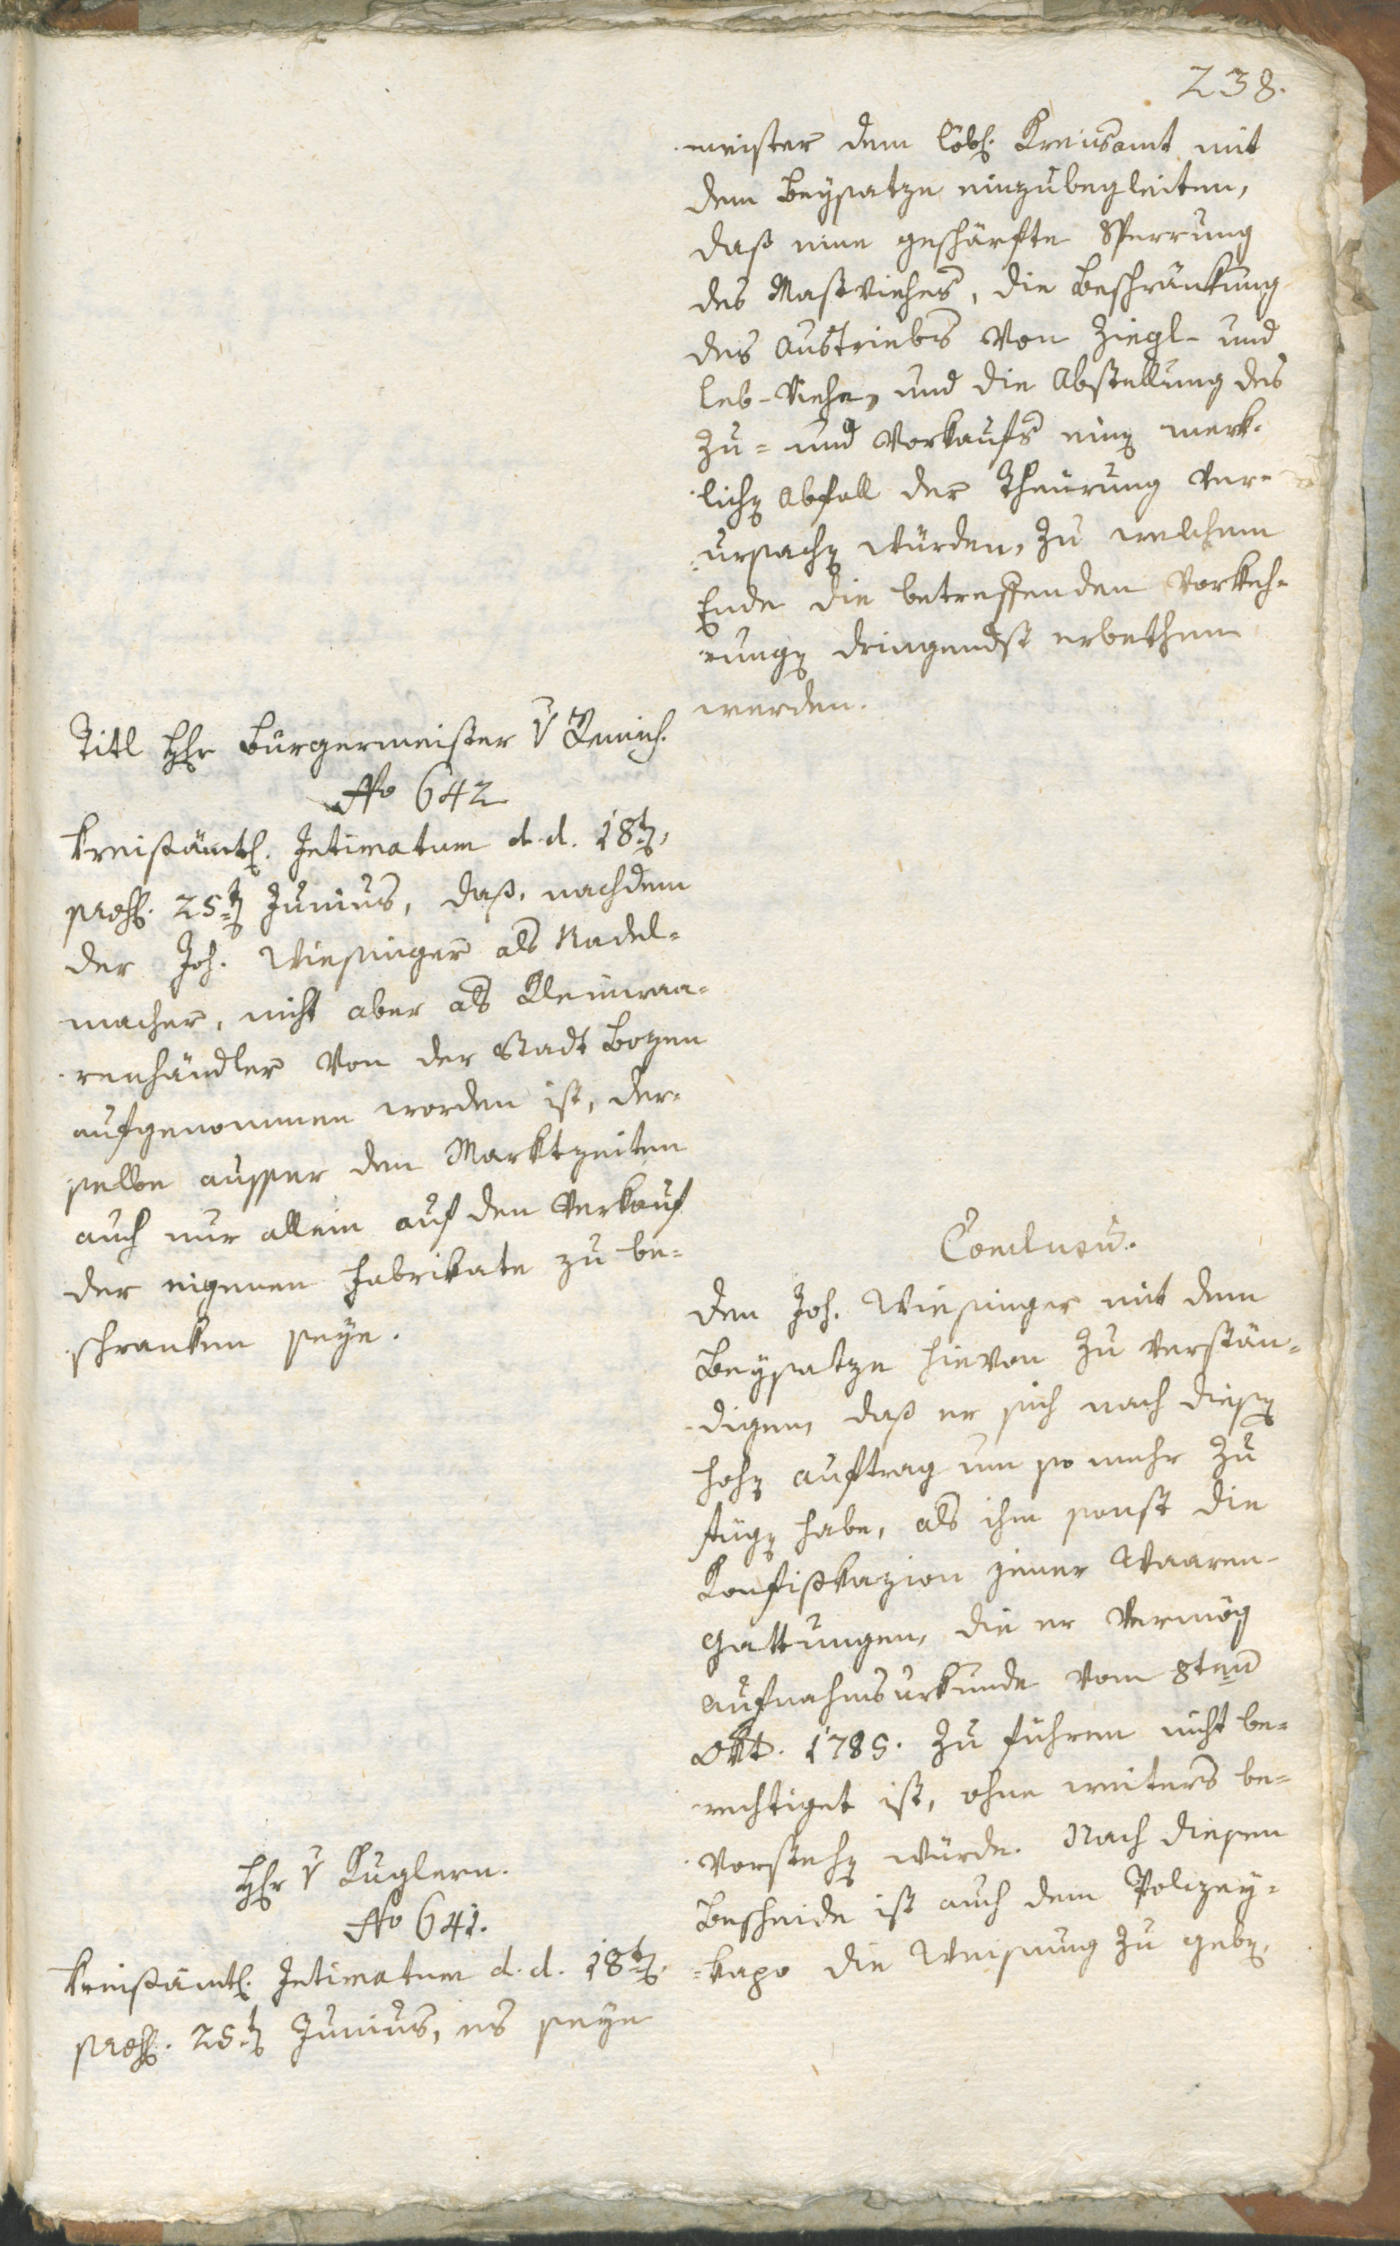 238.
meister dem löbl. Kreisamt mit
dem Beysatze einzubegleiten,
daß eine geschärfte Sperrung
des Mastviehes, die Beschränkung
des Austriebs von Ziegl- und
Leb-Viehe, und die Abstellung des
Zu- und Vorkaufs einen merk-
lichen Abfall der Theurung ver-
ursachen würden, zu welchem
Ende die betreffenden Vorkeh-
rungen dringendst erbethen
werden.
Titl Hhr Bürgermeister v
No 642
Kreisämtl. Intimatum d. d. 18ten,
praes. 25ten Junius, daß, nachdem
der Joh. Wiesinger als Nadel-
macher, nicht aber als Kleinwaa-
renhändler von der Stadt Bozen
aufgenommen worden ist, der-
selbe ausser den Marktzeiten
auch nur allein auf den Verkauf
der eigenen Fabrikate zu be-
schranken seye.
Conclusu.
Den Joh. Wiesinger mit dem
Beysatze hievon zu verstän-
digen, daß er sich nach diesen
hohen Auftrag um so mehr zu
fügen habe, als ihm sonst die
Konfiskazion jener Waaren-
Gattungen, die er vermög
Aufnahmsurkunde vom 8ten
Okt. 1785. zu führen nicht be-
rechtiget ist, ohne weiters be-
vorstehen würde. Nach diesem
Bescheide ist auch dem Polizey-
kapo die Weisung zu geben.
Hhr v Kuglern.
No 641.
Kreisämtl. Intimatum d. d. 18ten.
praes. 25ten Junius, es seye